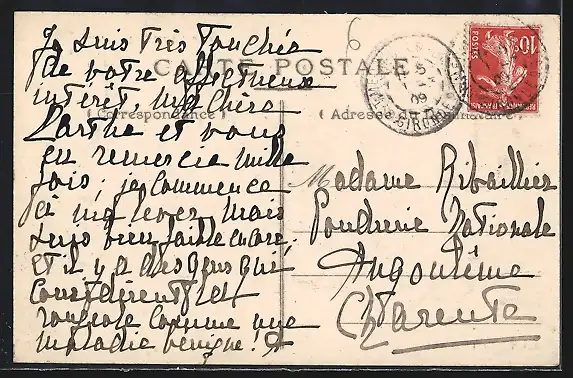 Je suis très touchée
de votre affectueux
intérêt, ma chère
Marthe et vous
en remercie mille
fois; je commence
à me lever, mais
suis bien faible encore,
et il y a des gens qui
considèrent la
rougeole comme une
maladie bénigne!
CARTE POSTALE
(Correspondance)
(Adresse du Destinataire)
6
09
GIRONDE
POSTES
10c
Madame Ribaillier
Poudrerie Nationale
Angoulême
Charente